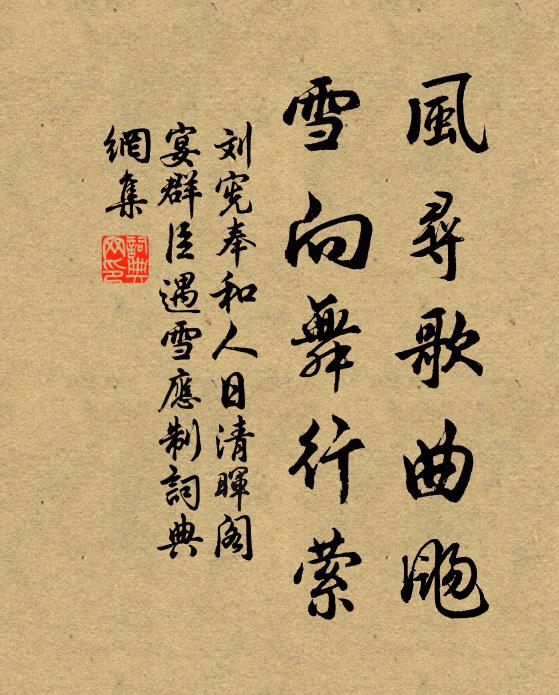 風尋歌曲飏
雪向舞行萦
刘宪奉和人日清暉阁
宴群臣遇雪應制詞典
網集
詞典网印